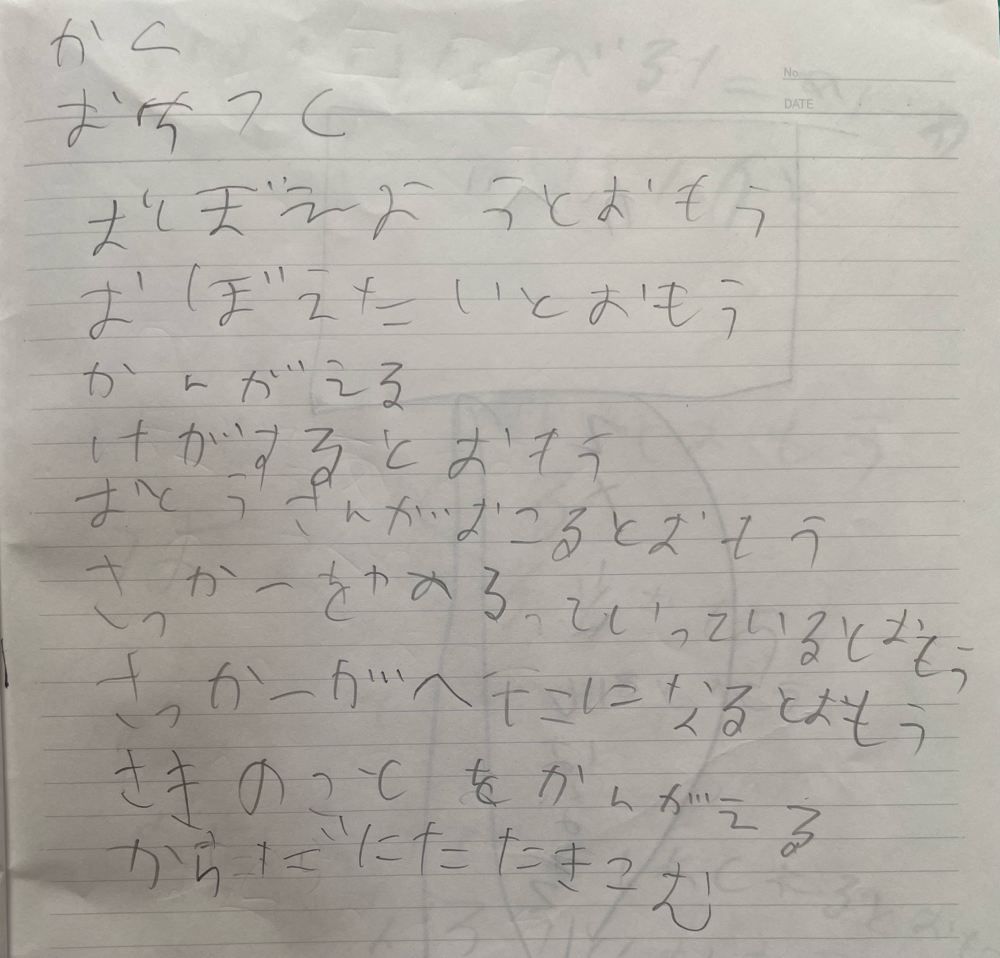 かく
おちつく
No.
DATE
おぼえようとおもう
おぼえたいとおもう
かんがえる
けがするとおもう
おとうさんがおこるとおもう
さっかーをやめろっていっているとおもう
さっかーがへたになるとおもう
さきのことをかんがえる
からだにたたきこむ